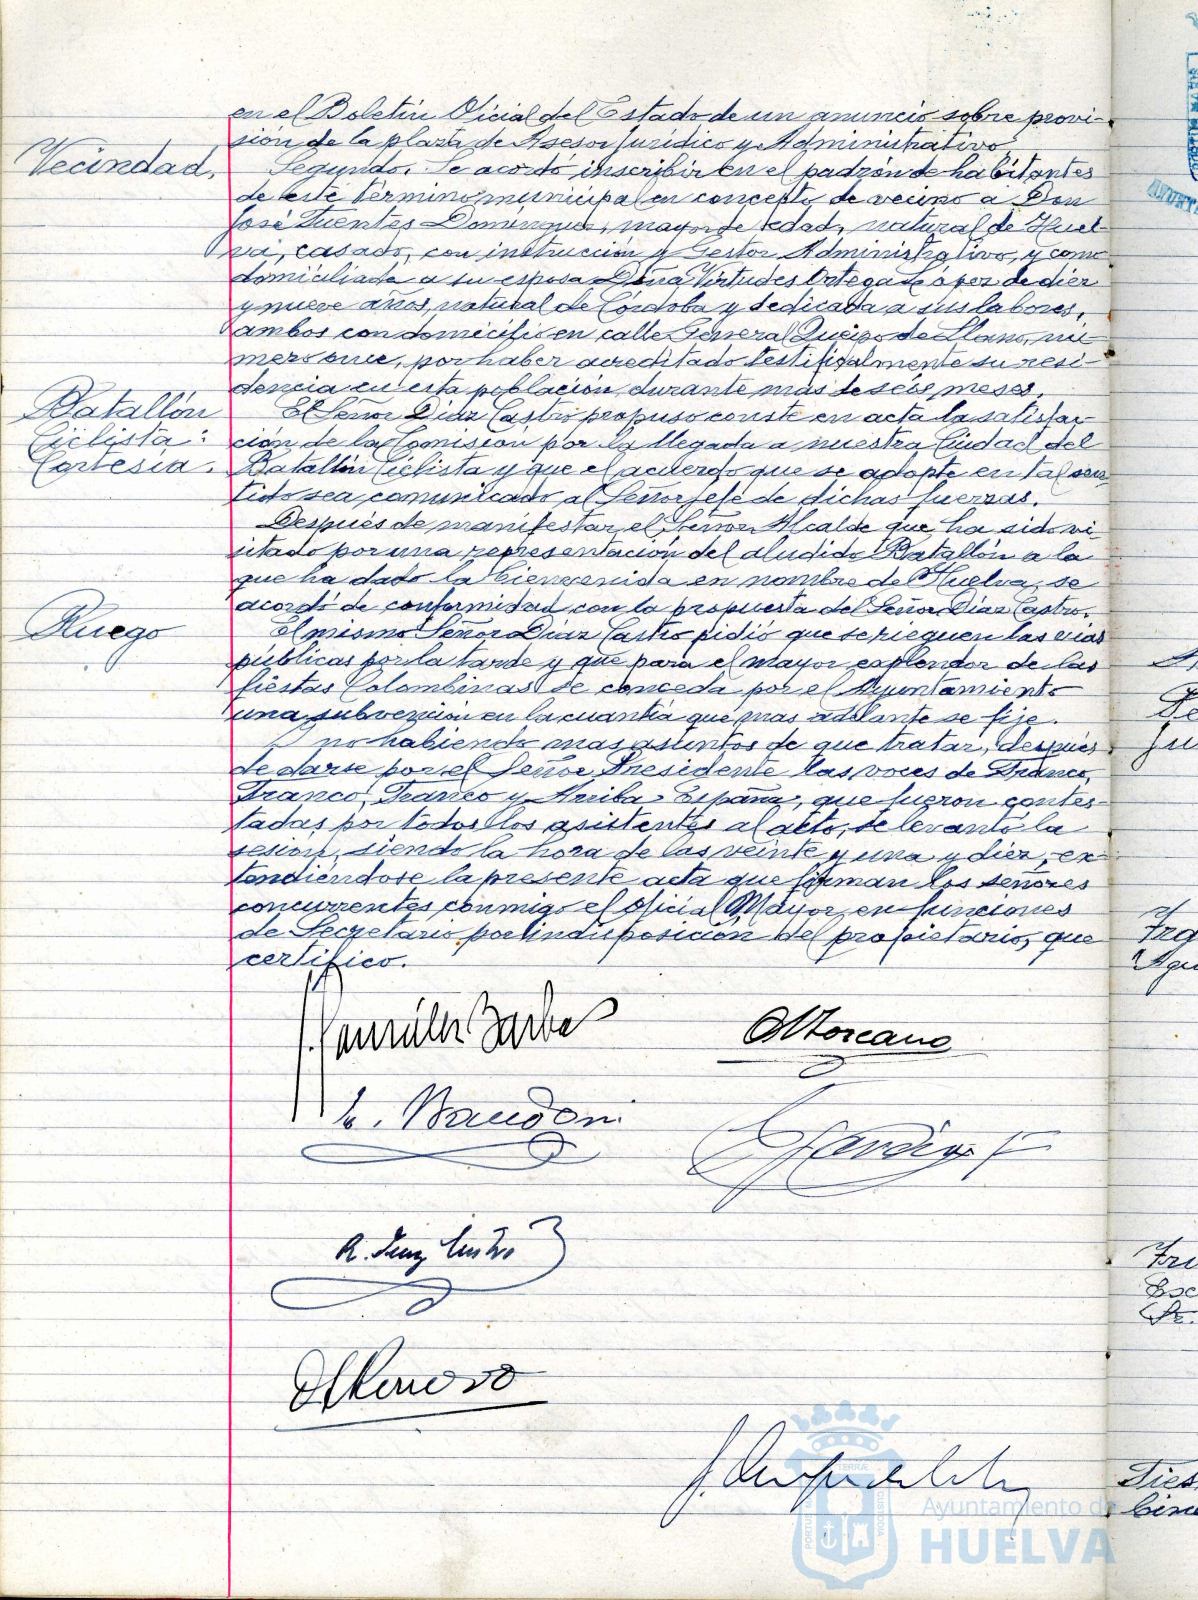 en el Boletín Oficial del Estado de un anuncio sobre provi-
sión de la plaza de Asesor Jurídico y Administrativo
Vecindad.
Segundo. Se acordó inscribir en el padrón de habitantes
de este término municipal en concepto de vecino a Don
José Fuentes Domínguez, mayor de edad, natural de Huel-
va, casado, con instrucción y Gestor Administrativo, y como
domiciliada a su esposa Doña Virtudes Ortega López de diez
y nueve años, natural de Córdoba y dedicada a sus labores,
ambos con domicilio en calle General Queipo de Llano, nú-
mero once, por haber acreditado testificalmente su resi-
dencia en esta población durante mas de seis meses.
Batallón
Ciclista:
Cortesía.
El Señor Díaz Castro propuso conste en acta la satisfac-
ción de la Comisión por la llegada a nuestra Ciudad del
Batallón Ciclista y que el acuerdo que se adopte en tal sen-
tido sea comunicado al Señor Jefe de dichas fuerzas.
Después de manifestar el Señor Alcalde que ha sido vi-
sitado por una representación del aludido Batallón a la
que ha dado la bienvenida en nombre de Huelva, se
acordó de conformidad con la propuesta del Señor Díaz Castro.
Ruego
El mismo Señor Díaz Castro pidió que se rieguen las vías
públicas por la tarde y que para el mayor esplendor de las
fiestas Colombinas se conceda por el Ayuntamiento
una subvención en la cuantía que mas adelante se fije.
Y no habiendo mas asuntos de que tratar, después
de darse por el Señor Presidente las voces de Franco,
Franco, Franco y Arriba España, que fueron contes-
tadas por todos los asistentes al acto, se levantó la
sesión, siendo la hora de las veinte y una y diez, ex-
tendiéndose la presente acta que firman los señores
concurrentes conmigo el Oficial Mayor en funciones
de Secretario por indisposición del propietario, que
certifico.
González Barba
R. Díaz Castro
Ayuntamiento de
HUELVA